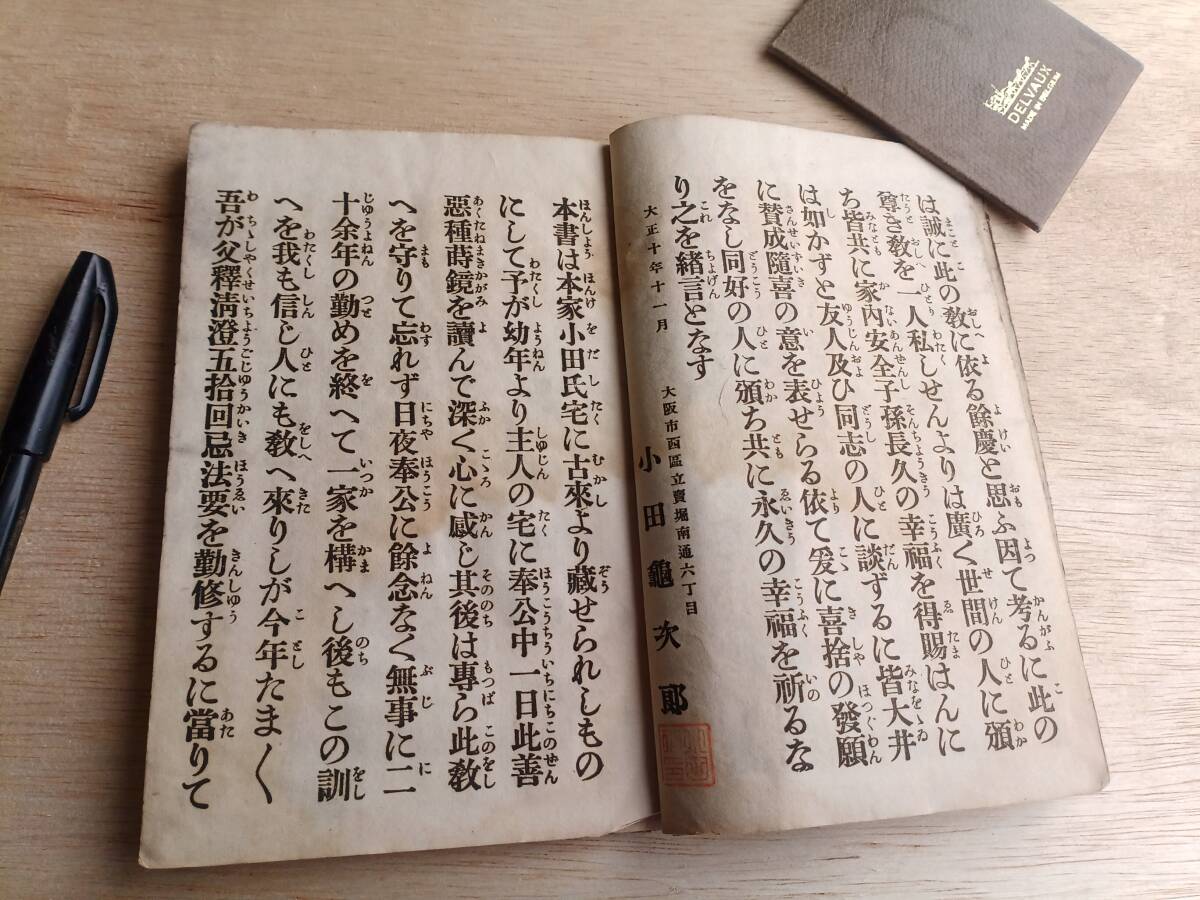 は誠に此の教に依る餘慶と思ふ因て考るに此の
尊き教を一人私しせんよりは廣く世間の人に頒
ち皆共に家内安全子孫長久の幸福を得賜はんに
は如かずと友人及ひ同志の人に談ずるに皆大井
に賛成隨喜の意を表せらる依て爰に喜捨の發願
をなし同好の人に頒ち共に永久の幸福を祈るな
り之を緒言となす
大正十年十一月
大阪市西區立賣堀南通六丁目
小田龜次郎
本書は本家小田氏宅に古來より藏せられしもの
にして予が幼年より主人の宅に奉公中一日此善
惡種蒔鏡を讀んで深く心に感じ其後は專ら此教
へを守りて忘れず日夜奉公に餘念なく無事に二
十余年の勤めを終へて一家を構へし後もこの訓
へを我も信じ人にも教へ來りしが今年たま〱
吾が父釋淸澄五拾回忌法要を勤修するに當りて
DELVAUX
MADE IN BELGIUM